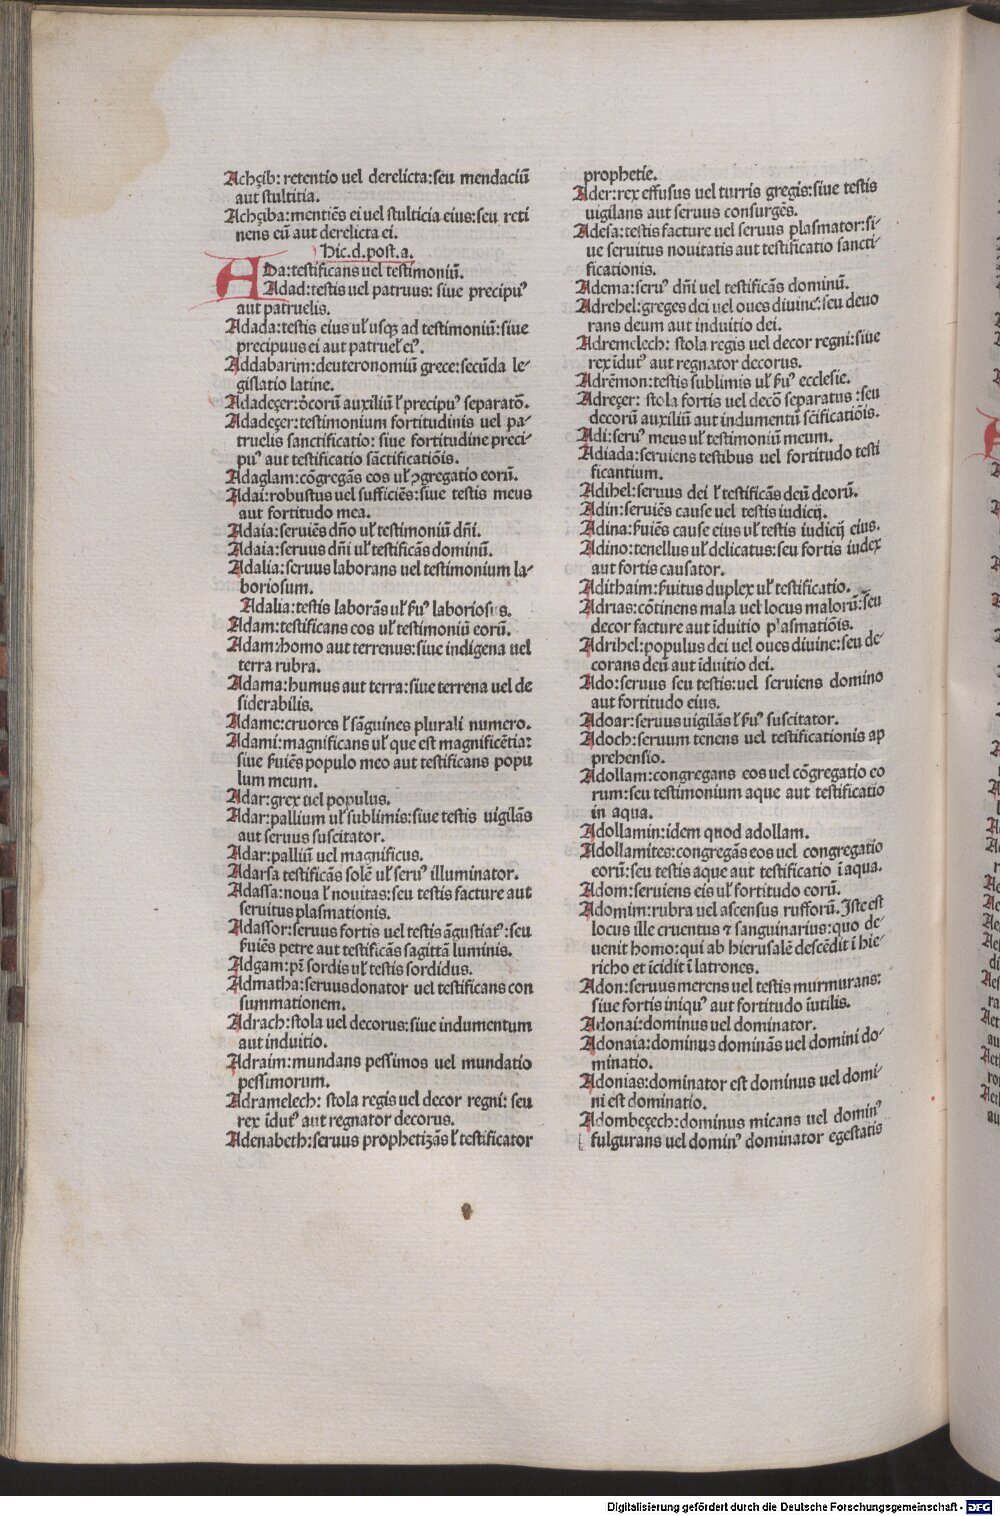 Achçib: retentio uel derelicta:seu mendaciũ
aut stultitia.
Achçiba:mentiẽs ei uel stulticia eius:seu reti
nens cũ aut derelicta ei.
Hic.d.post.a.
ADa:testificans uel testimoniũ.
Adad:testis uel patruus: siue precipuꝰ
aut patruelis.
Adada:testis eius uł usqꝫ ad testimoniũ:siue
precipuus ei aut patrueł eiꝰ.
Addabarim:deuteronomiũ grece:secũda le-
gislatio latine.
Adadeçer:õcorũ auxiliũ ł precipuꝰ separatõ.
Adadeçer:testimonium fortitudinis uel pa-
truelis sanctificatio: siue fortitudine preci-
puꝰ aut testificatio sãctificatiõis.
Adaglam:cõgregãs eos uł ꝯgregatio eorũ.
Adai:robustus uel sufficiẽs:siue testis meus
aut fortitudo mea.
Adaia:seruiẽs dño uł testimoniũ dñi.
Adaia:seruus dñi uł testificãs dominũ.
Adalia:seruus laborans uel testimonium la-
boriosum.
Adalia:testis laborãs uł ẜuꝰ laboriosus.
Adam:testificans eos uł testimoniũ eorũ.
Adam:homo aut terrenus:siue indigena uel
terra rubra.
Adama:humus aut terra:siue terrena uel de
siderabilis.
Adame:cruores ł sãguines plurali numero.
Adami:magnificans uł que est magnificẽtia:
siue ẜuiẽs populo meo aut testificans popu
lum meum.
Adar:grex uel populus.
Adar:pallium uł sublimis:siue testis uigilãs
aut seruus suscitator.
Adar:palliũ uel magnificus.
Adarsa testificãs solẽ uł seruꝰ illuminator.
Adassa:noua ł nouitas:seu testis facture aut
seruitus plasmationis.
Adassor:seruus fortis uel testis ãgustiatꝰ:seu
ẜuiẽs petre aut testificãs sagittã luminis.
Adgam:pĩ sordis uł testis sordidus.
Admatha:seruus donator uel testificans con
summationem.
Adrach:stola uel decorus:siue indumentum
aut induitio.
Adraim:mundans pessimos uel mundatio
pessimorum.
Adramelech: stola regis uel decor regni: seu
rex ĩdutꝰ aut regnator decorus.
Adenabeth:seruus prophetiʒãs ł testificator
prophetie.
Ader:rex effusus uel turris gregis:siue testis
uigilans aut seruus consurgẽs.
Adesa:testis facture uel seruus plasmator:si-
ue seruitus nouitatis aut testificatio sancti-
ficationis.
Adema:seruꝰ dñi uel testificãs dominũ.
Adrehel:greges dei uel oues diuine:seu deuo
rans deum aut induitio dei.
Adremelech: stola regis uel decor regni:siue
rex ĩdutꝰ aut regnator decorus.
Adrẽmon:testis sublimis uł ẜuꝰ ecclesie.
Adreçer: stola fortis uel decõ separatus :seu
decorũ auxiliũ aut indumentũ sc̃ificatiõis.
Adi:seruꝰ meus uł testimoniũ meum.
Adiada:seruiens testibus uel fortitudo testi
ficantium.
Adihel:seruus dei ł testificãs deũ deorũ.
Adin:seruiẽs cause uel testis iudicij.
Adina:ẜuiẽs cause eius uł testis iudicij eius.
Adino:tenellus uł delicatus:seu fortis iudex
aut fortis causator.
Adithaim:ẜuitus duplex uł testificatio.
Adrias:cõtinens mala uel locus malorũ:seu
decor facture aut ĩduitio plasmatiõis.
Adrihel:populus dei uel oues diuine:seu de-
corans deũ aut ĩduitio dei.
Ado:seruus seu testis:uel seruiens domino
aut fortitudo eius.
Adoar:seruus uigilãs ł ẜuꝰ suscitator.
Adoch:seruum tenens uel testificationis ap
prehensio.
Adollam:congregans eos uel cõgregatio eo
rum:seu testimonium aque aut testificatio
in aqua.
Adollamin:idem quod adollam.
Adollamites:congregãs eos uel congregatio
eorũ:seu testis aque aut testificatio ĩ aqua.
Adom:seruiens eis uł fortitudo eorũ.
Adomim:rubra uel ascensus rufforũ. Iste est
locus ille cruentus ⁊ sanguinarius:quo de-
uenit homo:qui ab hierusalẽ descẽdit ĩ hie-
richo et ĩcidit ĩ latrones.
Adon:seruus merens uel testis murmurans:
siue fortis iniquꝰ aut fortitudo ĩutilis.
Adonai:dominus uel dominator.
Adonaia:dominus dominãs uel domini do-
minatio.
Adonias:dominator est dominus uel domi-
ni est dominatio.
Adombeçech:dominus micans uel dominꝰ
fulgurans uel dominꝰ dominator egestatis
Digitalisierung gefördert durch die Deutsche Forschungsgemeinschaft - DFG